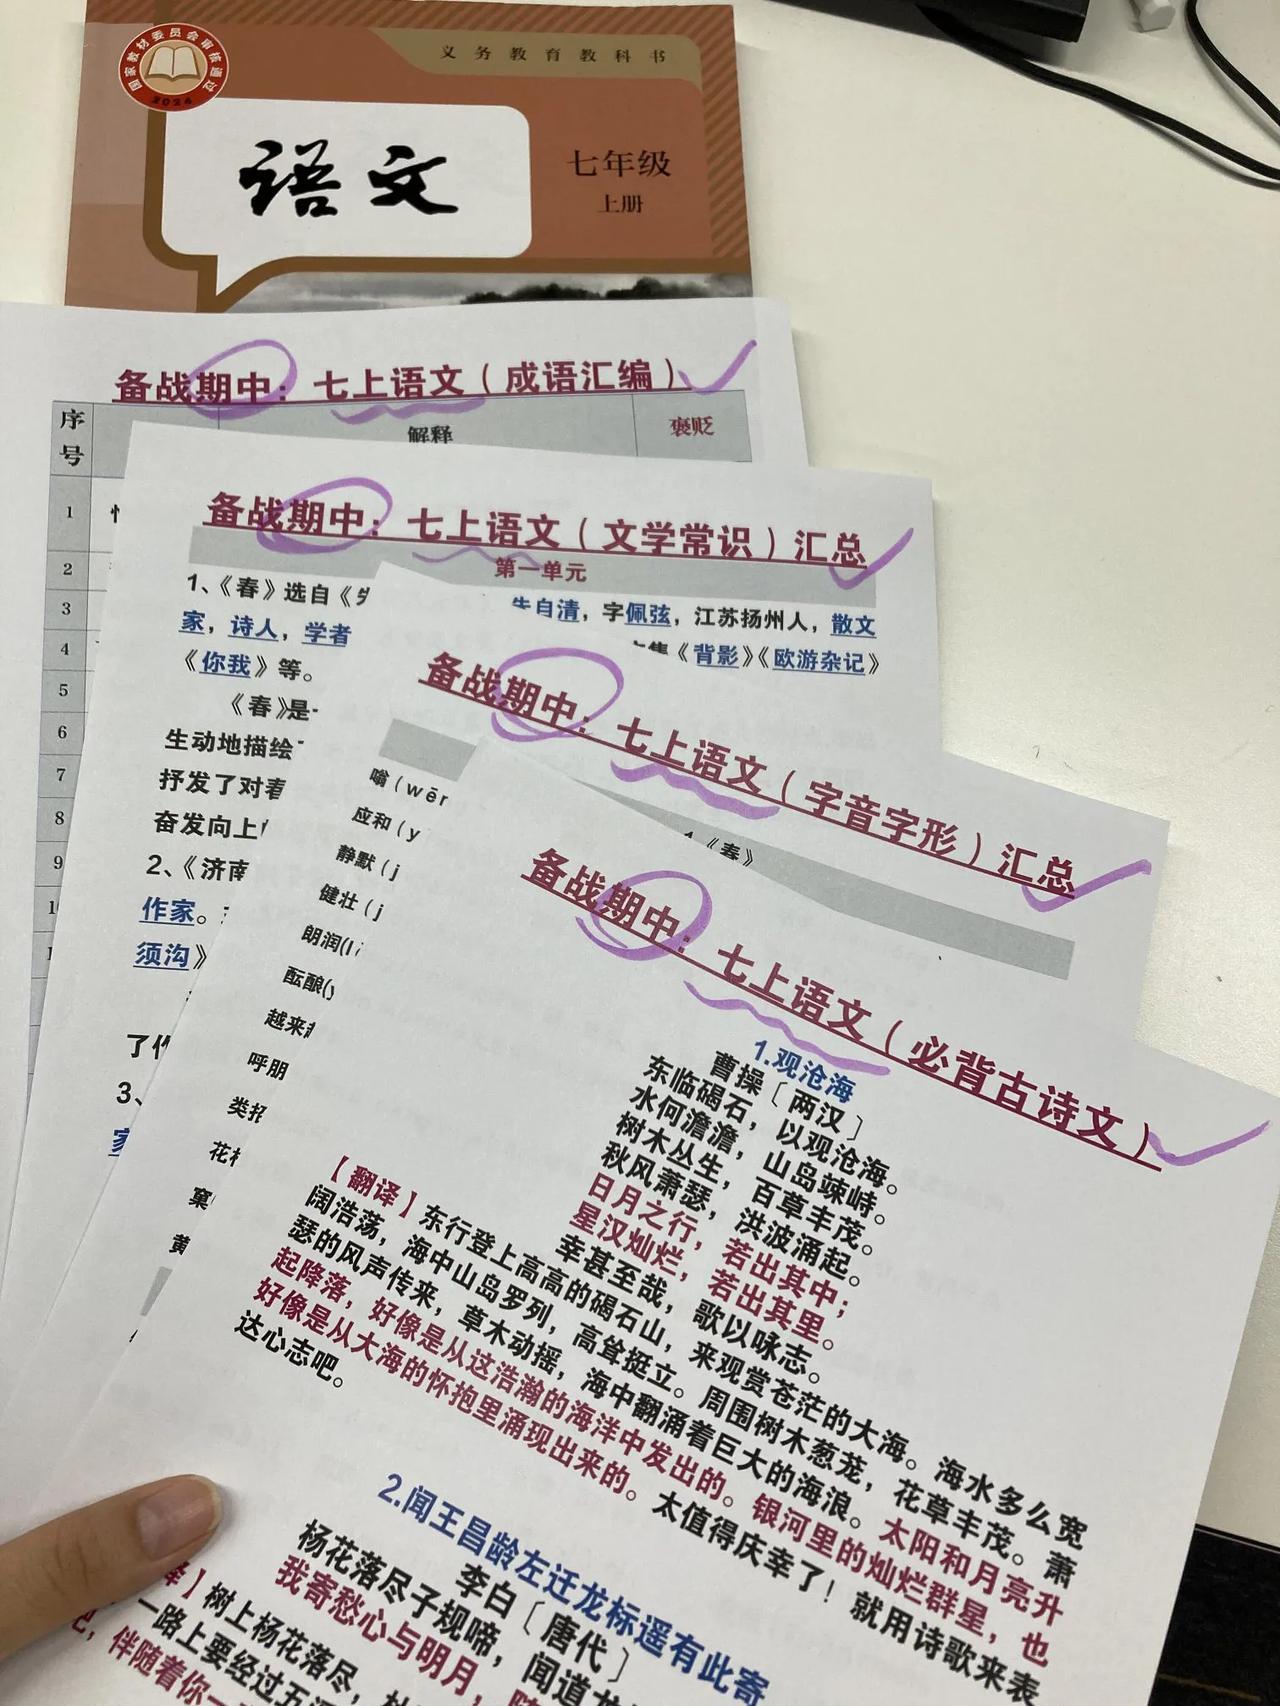 国家教材委员会审核通过
2024
义务教育教科书
语文
七年级
上册
备战期中：七上语文（成语汇编）
序号
解释
褒贬
1
2
3
4
5
6
7
8
9
备战期中：七上语文（文学常识）汇总
第一单元
1、《春》选自《朱
朱自清，字佩弦，江苏扬州人，散文
家，诗人，学者
《背影》《欧游杂记》
《你我》等。
《春》是
生动地描绘
抒发了对春
奋发向上
2、《济南
作家。
须沟》
了作
3、
家
备战期中：七上语文（字音字形）汇总
1《春》
嗡（wēn
应和（y
静默（j
健壮（j
朗润(l
酝酿(y
越来越
呼朋
类招
花枝
窠
黄
备战期中：七上语文（必背古诗文）
1.观沧海
曹操〔两汉〕
东临碣石，以观沧海。
水何澹澹，山岛竦峙。
树木丛生，百草丰茂。
秋风萧瑟，洪波涌起。
日月之行，若出其中；
星汉灿烂，若出其里。
幸甚至哉，歌以咏志。
【翻译】东行登上高高的碣石山，来观赏苍茫的大海。海水多么宽
阔浩荡，海中山岛罗列，高耸挺立。周围树木葱茏，花草丰茂。萧
瑟的风声传来，草木动摇，海中翻涌着巨大的海浪。太阳和月亮升
起降落，好像是从这浩瀚的海洋中发出的。银河里的灿烂群星，也
好像是从大海的怀抱里涌现出来的。太值得庆幸了！就用诗歌来表
达心志吧。
2.闻王昌龄左迁龙标遥有此寄
李白〔唐代〕
杨花落尽子规啼，闻道龙
我寄愁心与明月，随
译】树上杨花落尽，杜
一路上要经过五溪
吧，伴随着你一